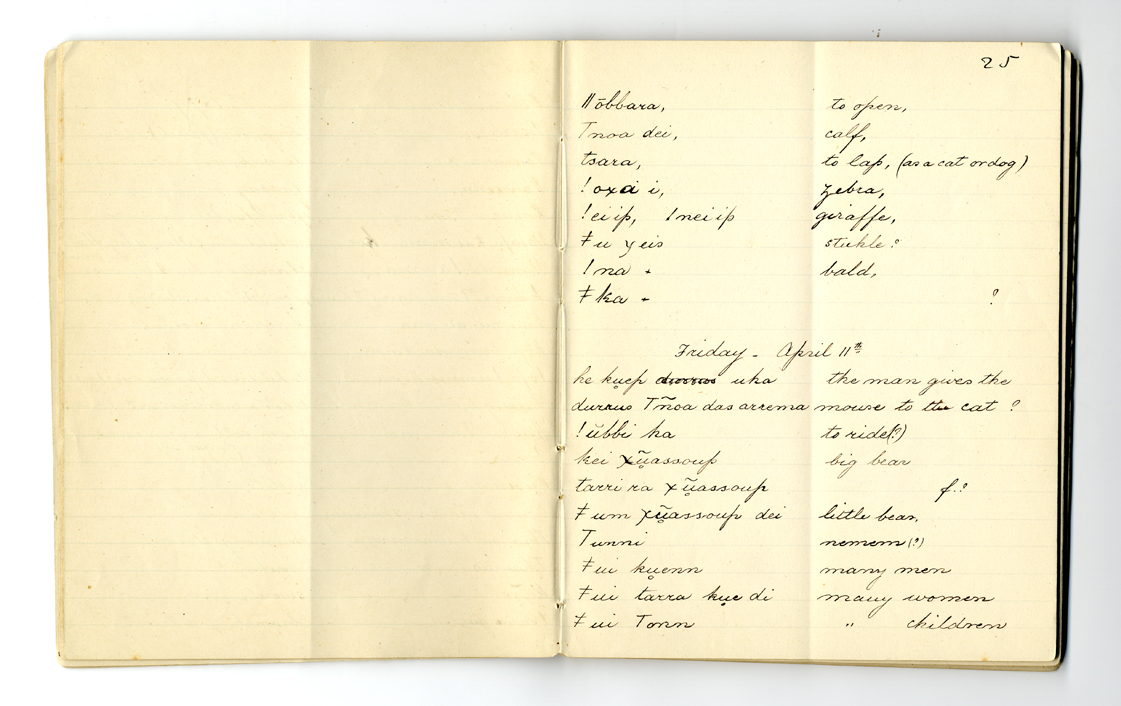 25
ǁŏbbara, to open,
Tnoa dei, calf,
tsara, to lap, (as a cat or dog)
!oxa i, zebra,
!eiip, Ineiip giraffe,
ǂu yeis stickle?
!na + bald,
ǂka + ?
Friday - April 11th
he ku̥ep durrus uha the man gives the
durrus Tñoa das arrema mouse to the cat ?
!ŭbbi ha to ride(?)
kei xũ̥assoup big bear
tarri ra xũ̥assoup f.?
ǂum xũ̥assoup dei little bear,
Tunni nemem(?)
ǂui ku̥enn many men
ǂui tarra ku̥e di many women
ǂui Tonn " children